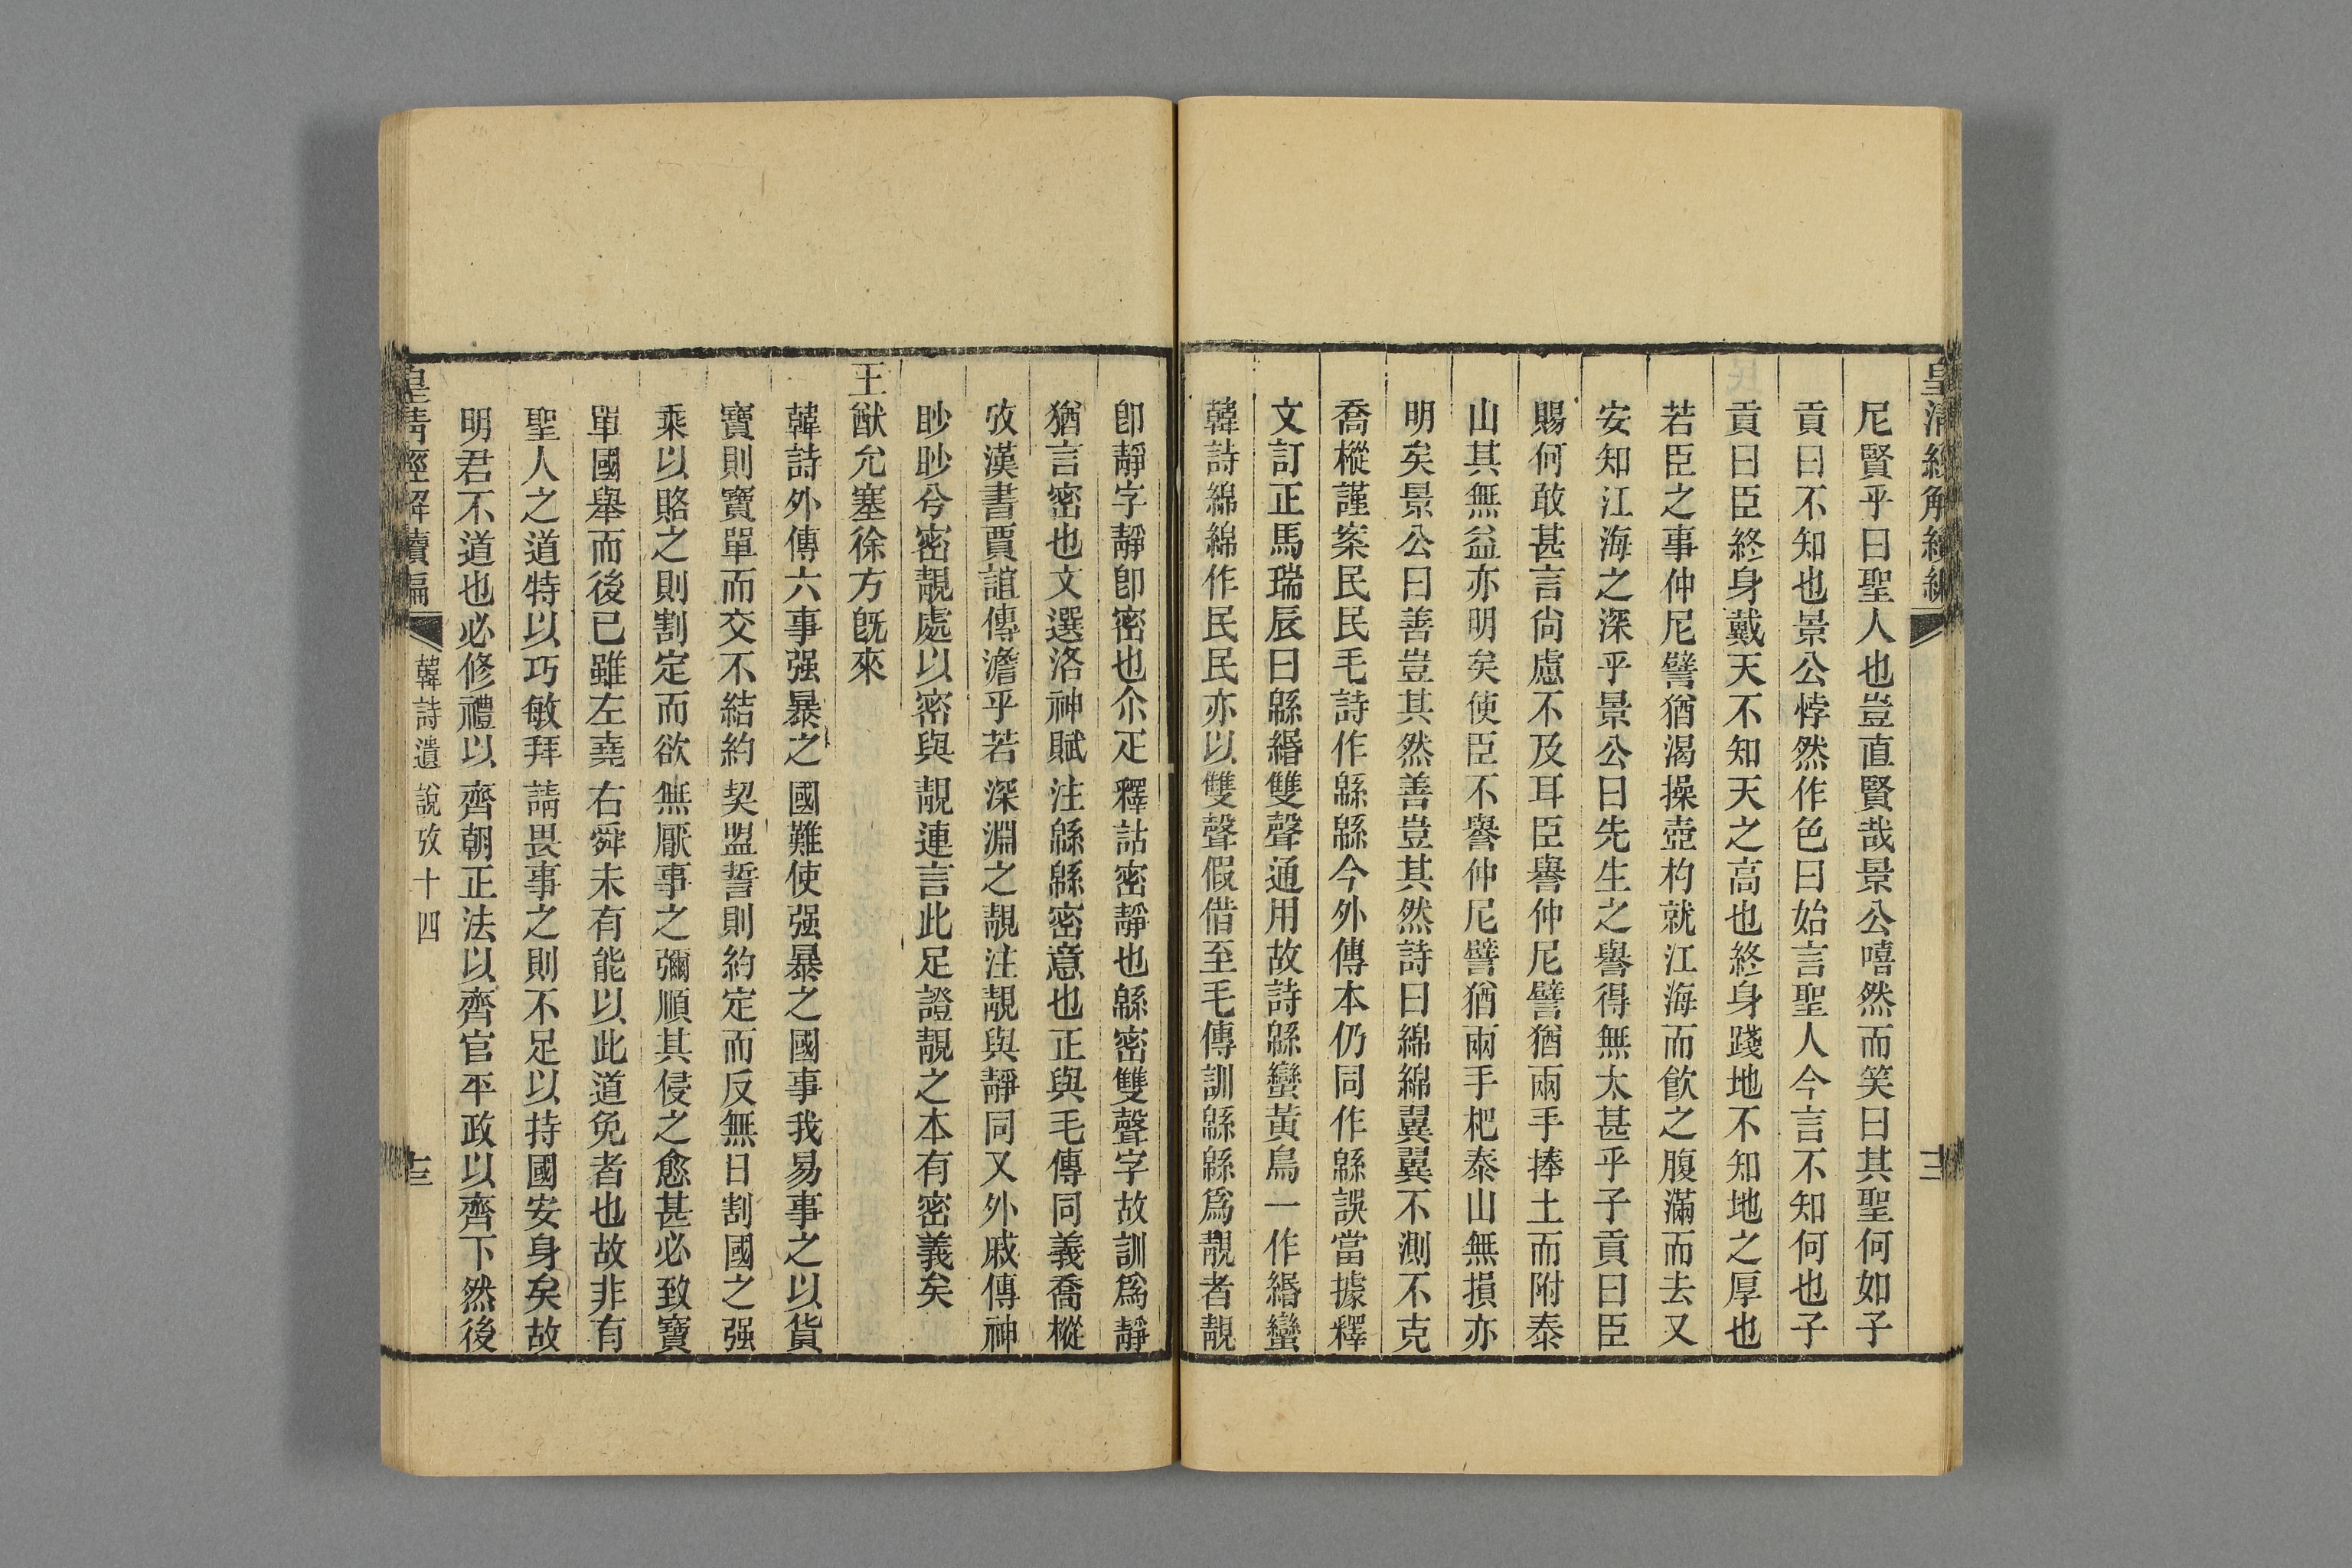 皇清經解續編
三
尼賢乎曰聖人也豈直賢哉景公嘻然而笑曰其聖何如子
貢曰不知也景公悖然作色曰始言聖人今言不知何也子
貢曰臣終身戴天不知天之高也終身踐地不知地之厚也
若臣之事仲尼譬猶渴操壺杓就江海而飮之腹滿而去又
安知江海之深乎景公曰先生之譽得無太甚乎子貢曰臣
賜何敢甚言尙慮不及耳臣譽仲尼譬猶兩手捧土而附泰
山其無益亦明矣使臣不譽仲尼譬猶兩手杷泰山無損亦
明矣景公曰善豈其然善豈其然詩曰綿綿翼翼不測不克
喬樅謹案民民毛詩作緜緜今外傳本仍同作緜誤當據釋
文訂正馬瑞辰曰緜緡雙聲通用故詩緜蠻黃鳥一作緡蠻
韓詩綿綿作民民亦以雙聲假借至毛傳訓緜緜爲靚者靚
卽靜字靜卽密也尒疋釋詁密靜也緜密雙聲字故訓爲靜
猶言密也文選洛神賦注緜緜密意也正與毛傳同義喬樅
攷漢書賈誼傳澹乎若深淵之靚注靚與靜同又外戚傳神
眇眇兮密靚處以密與靚連言此足證靚之本有密義矣
王猷允塞徐方旣來
韓詩外傳六事强暴之國難使强暴之國事我易事之以貨
寶則寶單而交不結約契盟誓則約定而反無日割國之强
乘以賂之則割定而欲無厭事之彌順其侵之愈甚必致寶
單國舉而後已雖左堯右舜未有能以此道免者也故非有
聖人之道特以巧敏拜請畏事之則不足以持國安身矣故
明君不道也必修禮以齊朝正法以齊官平政以齊下然後
皇淸經解續編
韓詩遺說攷十四